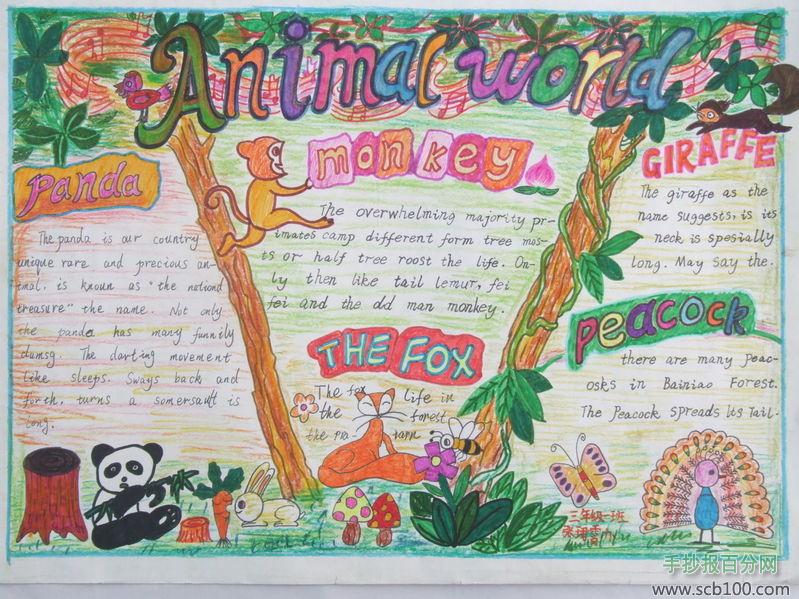 Animal world
Panda
The panda is our country
unique rare and precious an-
imal, is known as "the nationd
treasure" the name. Not only
the panda has many funnily
dumsg. The darting movement
like sleeps. Sways back and
forth, turns a somersault is
long.
monkey
The overwhelming majority pr-
imates camp different form tree mos-
ts or half tree roost the life. On-
ly then like tail lemur, fei
fei and the dd man monkey.
THE FOX
The fox life in
the forest
the pra- tarn
GIRAFFE
The giraffe as the
name suggests, is its
neck is spesially
long. May say the.
Peacock
there are many peac-
osks in Bainiao Forest.
The Peacock spreads lts Tail.
三年级一班
手抄报百分网
www.scb100.com